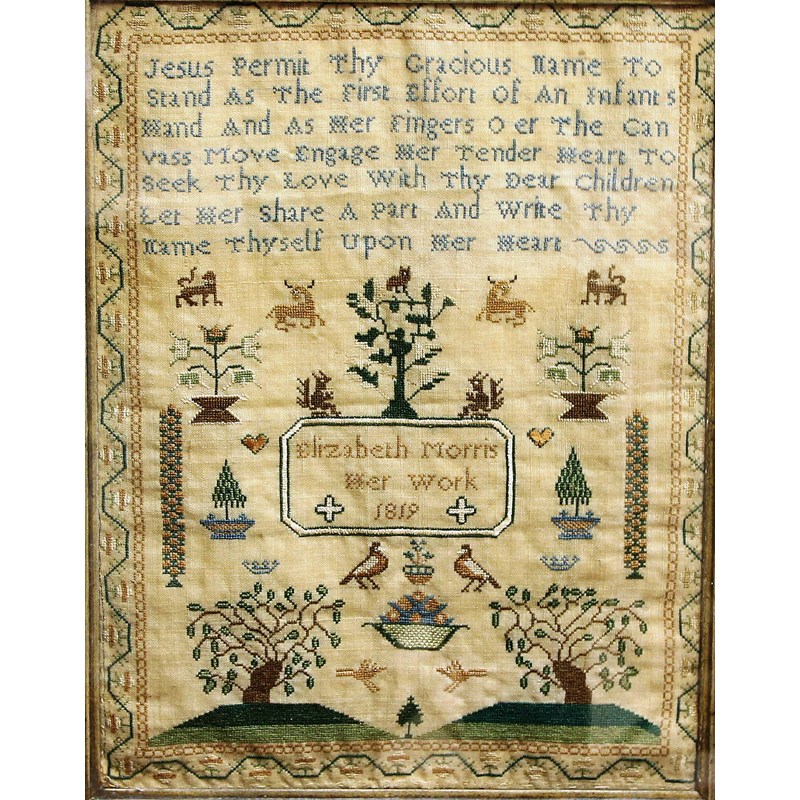 Jesus Permit Thy Gracious Name To
Stand As The First Effort Of An Infants
Hand And As Her Fingers O er The Can
vass Move Engage Her Tender Heart To
Seek Thy Love With Thy Dear Children
Let Her Share A Part And Write Thy
Name Thyself Upon Her Heart
Elizabeth Morris
Her Work
1819